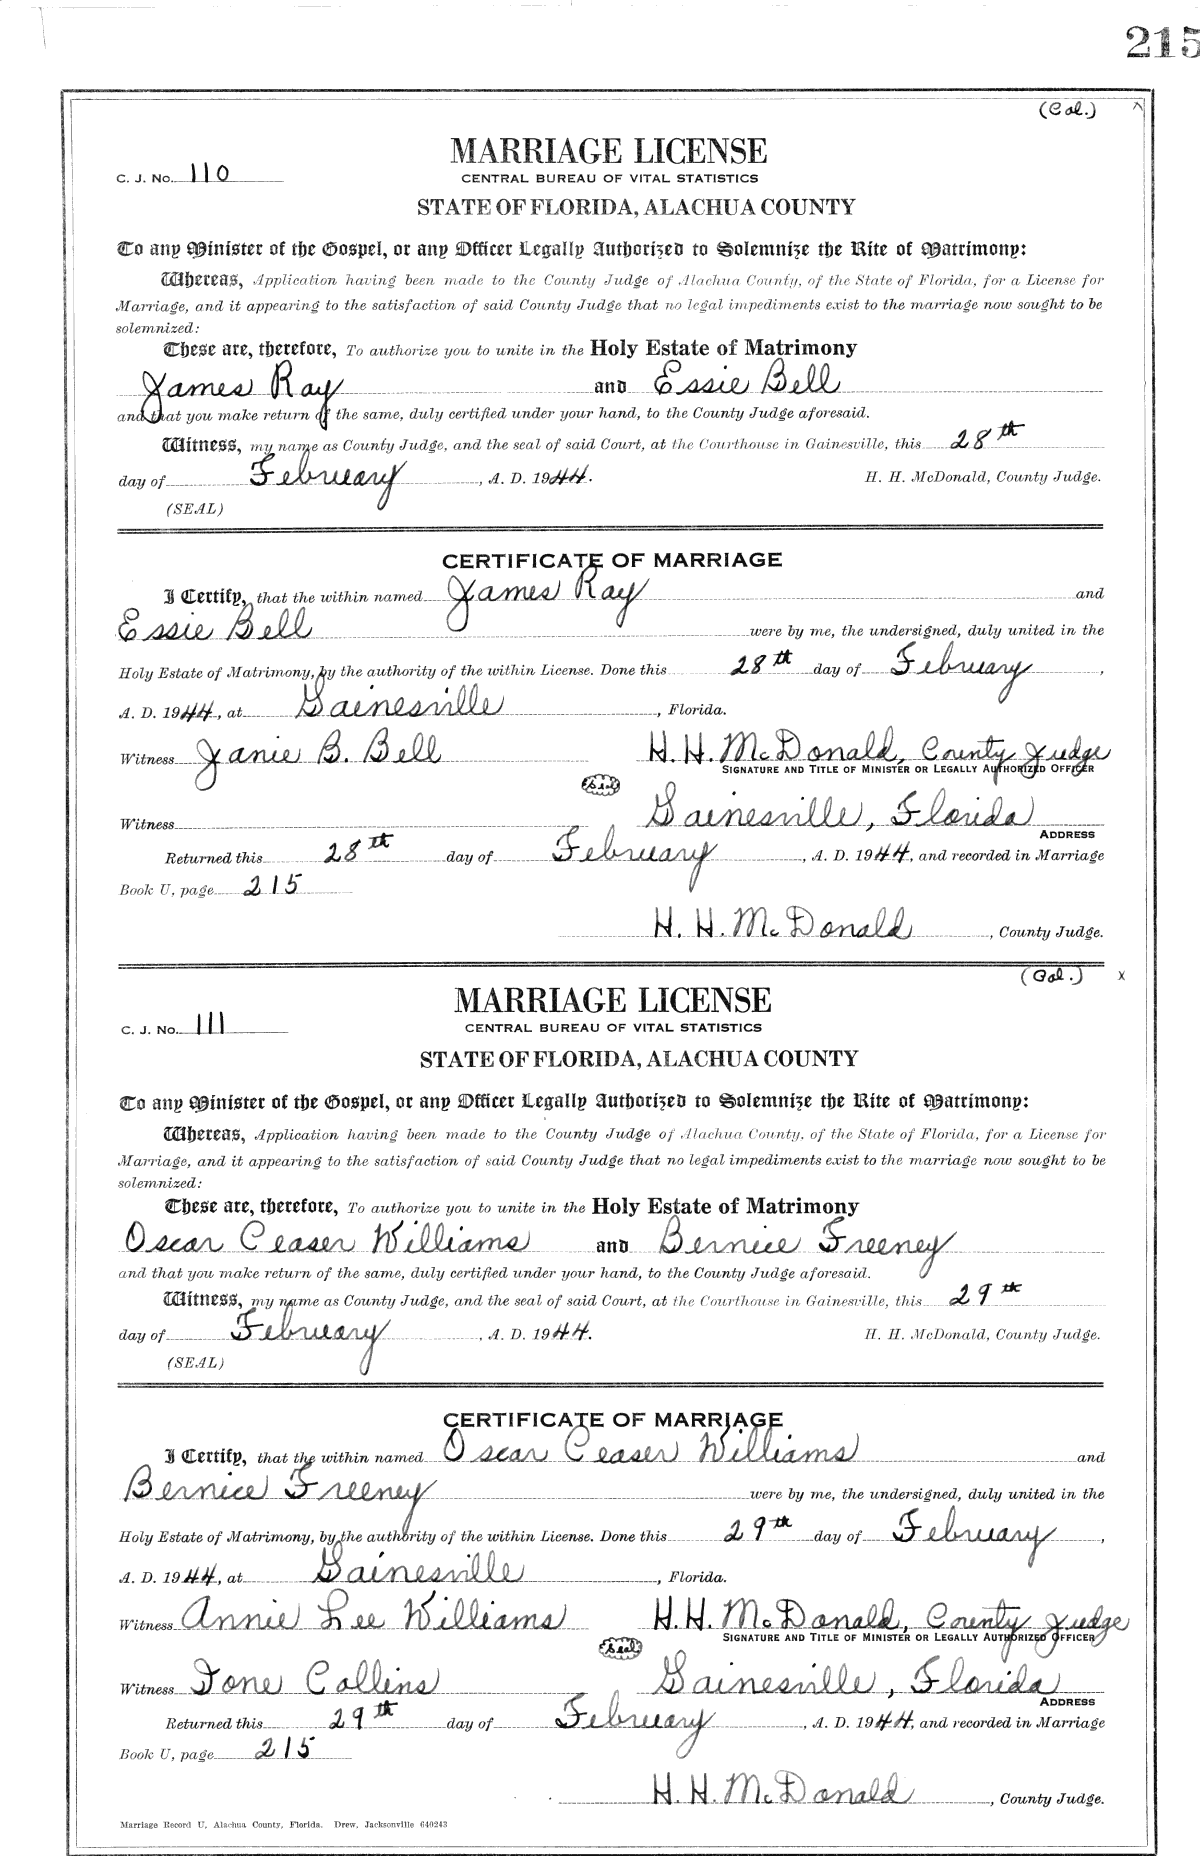 215
(Col.)
MARRIAGE LICENSE
C. J. No. 110
CENTRAL BUREAU OF VITAL STATISTICS
STATE OF FLORIDA, ALACHUA COUNTY
To any Minister of the Gospel, or any Officer Legally Authorized to Solemnize the Rite of Matrimony:
Whereas, Application having been made to the County Judge of Alachua County, of the State of Florida, for a License for
Marriage, and it appearing to the satisfaction of said County Judge that no legal impediments exist to the marriage now sought to be
solemnized:
These are, therefore, To authorize you to unite in the Holy Estate of Matrimony
James Ray and Essie Bell
and that you make return of the same, duly certified under your hand, to the County Judge aforesaid.
Witness, my name as County Judge, and the seal of said Court, at the Courthouse in Gainesville, this 28th
day of February, A. D. 1944. H. H. McDonald, County Judge.
(SEAL)
CERTIFICATE OF MARRIAGE
I Certify, that the within named James Ray and
Essie Bell were by me, the undersigned, duly united in the
Holy Estate of Matrimony, by the authority of the within License. Done this 28th day of February,
A. D. 1944, at Gainesville, Florida.
Witness Janie B. Bell H. H. McDonald, County Judge
SIGNATURE AND TITLE OF MINISTER OR LEGALLY AUTHORIZED OFFICER
Seal
Witness Gainesville, Florida
ADDRESS
Returned this 28th day of February, A. D. 1944, and recorded in Marriage
Book U, page 215
H. H. McDonald, County Judge.
(Col.) x
MARRIAGE LICENSE
C. J. No. 111
CENTRAL BUREAU OF VITAL STATISTICS
STATE OF FLORIDA, ALACHUA COUNTY
To any Minister of the Gospel, or any Officer Legally Authorized to Solemnize the Rite of Matrimony:
Whereas, Application having been made to the County Judge of Alachua County, of the State of Florida, for a License for
Marriage, and it appearing to the satisfaction of said County Judge that no legal impediments exist to the marriage now sought to be
solemnized:
These are, therefore, To authorize you to unite in the Holy Estate of Matrimony
Oscar Ceaser Williams and Bernice Freeney
and that you make return of the same, duly certified under your hand, to the County Judge aforesaid.
Witness, my name as County Judge, and the seal of said Court, at the Courthouse in Gainesville, this 29th
day of February, A. D. 1944. H. H. McDonald, County Judge.
(SEAL)
CERTIFICATE OF MARRIAGE
I Certify, that the within named Oscar Ceaser Williams and
Bernice Freeney were by me, the undersigned, duly united in the
Holy Estate of Matrimony, by the authority of the within License. Done this 29th day of February,
A. D. 1944, at Gainesville, Florida.
Witness Annie Lee Williams H. H. McDonald, County Judge
SIGNATURE AND TITLE OF MINISTER OR LEGALLY AUTHORIZED OFFICER
Seal
Witness Ione Collins Gainesville, Florida
ADDRESS
Returned this 29th day of February, A. D. 1944, and recorded in Marriage
Book U, page 215
H. H. McDonald, County Judge.
Marriage Record U, Alachua County, Florida. Drew, Jacksonville 640243